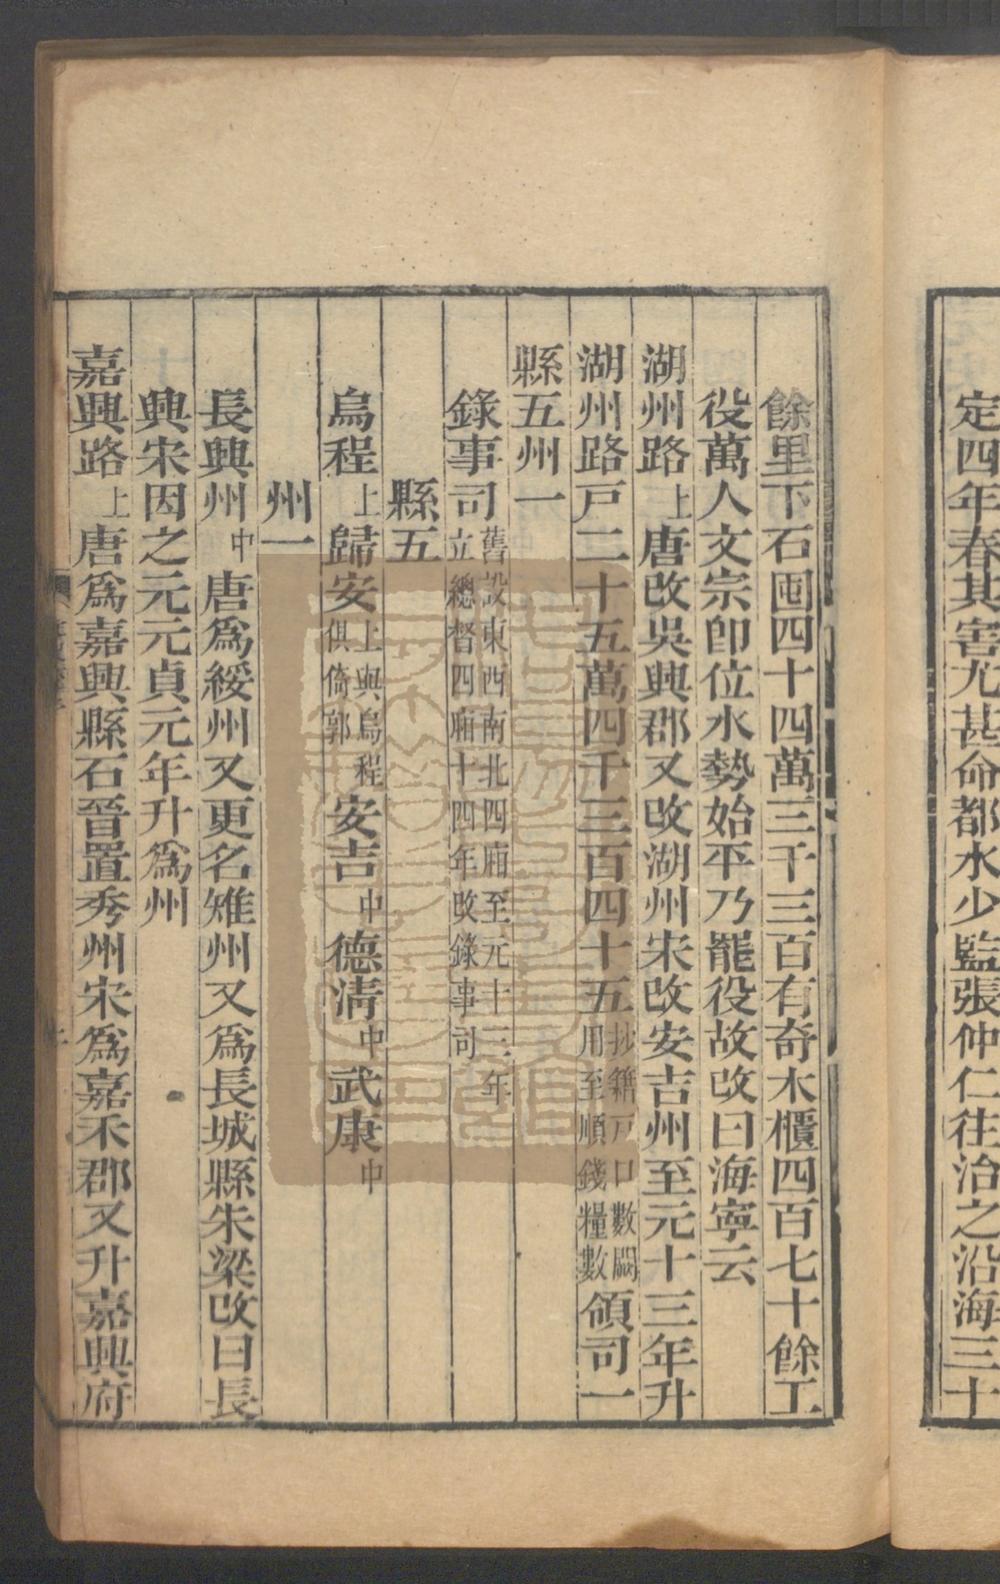 定四年春其害尤甚命都水少監張仲仁往治之沿海三十
餘里下石囤四十四萬三千三百有奇木櫃四百七十餘工
役萬人文宗即位水勢始平乃罷役故改曰海寧云
湖州路上唐改吳興郡又改湖州宋改安吉州至元十三年升
湖州路戸二十五萬四千三百四十五抄籍戸口數闕用至順錢糧數領司一
縣五州一
錄事司舊設東西南北四廂至元十三年立總督四廂十四年改錄事司
縣五
烏程上歸安上與烏程俱倚郭安吉中德淸中武康中
州一
長興州中唐爲綏州又更名雉州又爲長城縣朱梁改曰長
興宋因之元元貞元年升爲州
嘉興路上唐爲嘉興縣石晉置秀州宋爲嘉禾郡又升嘉興府